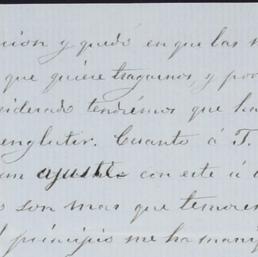 cion y quedó en que las n
que quiere tragarnos, y por
siderado tendrémos que ha
englutir. Cuanto á T.
un ajuste con este ú o
o son mas que temores
l principio me ha mani